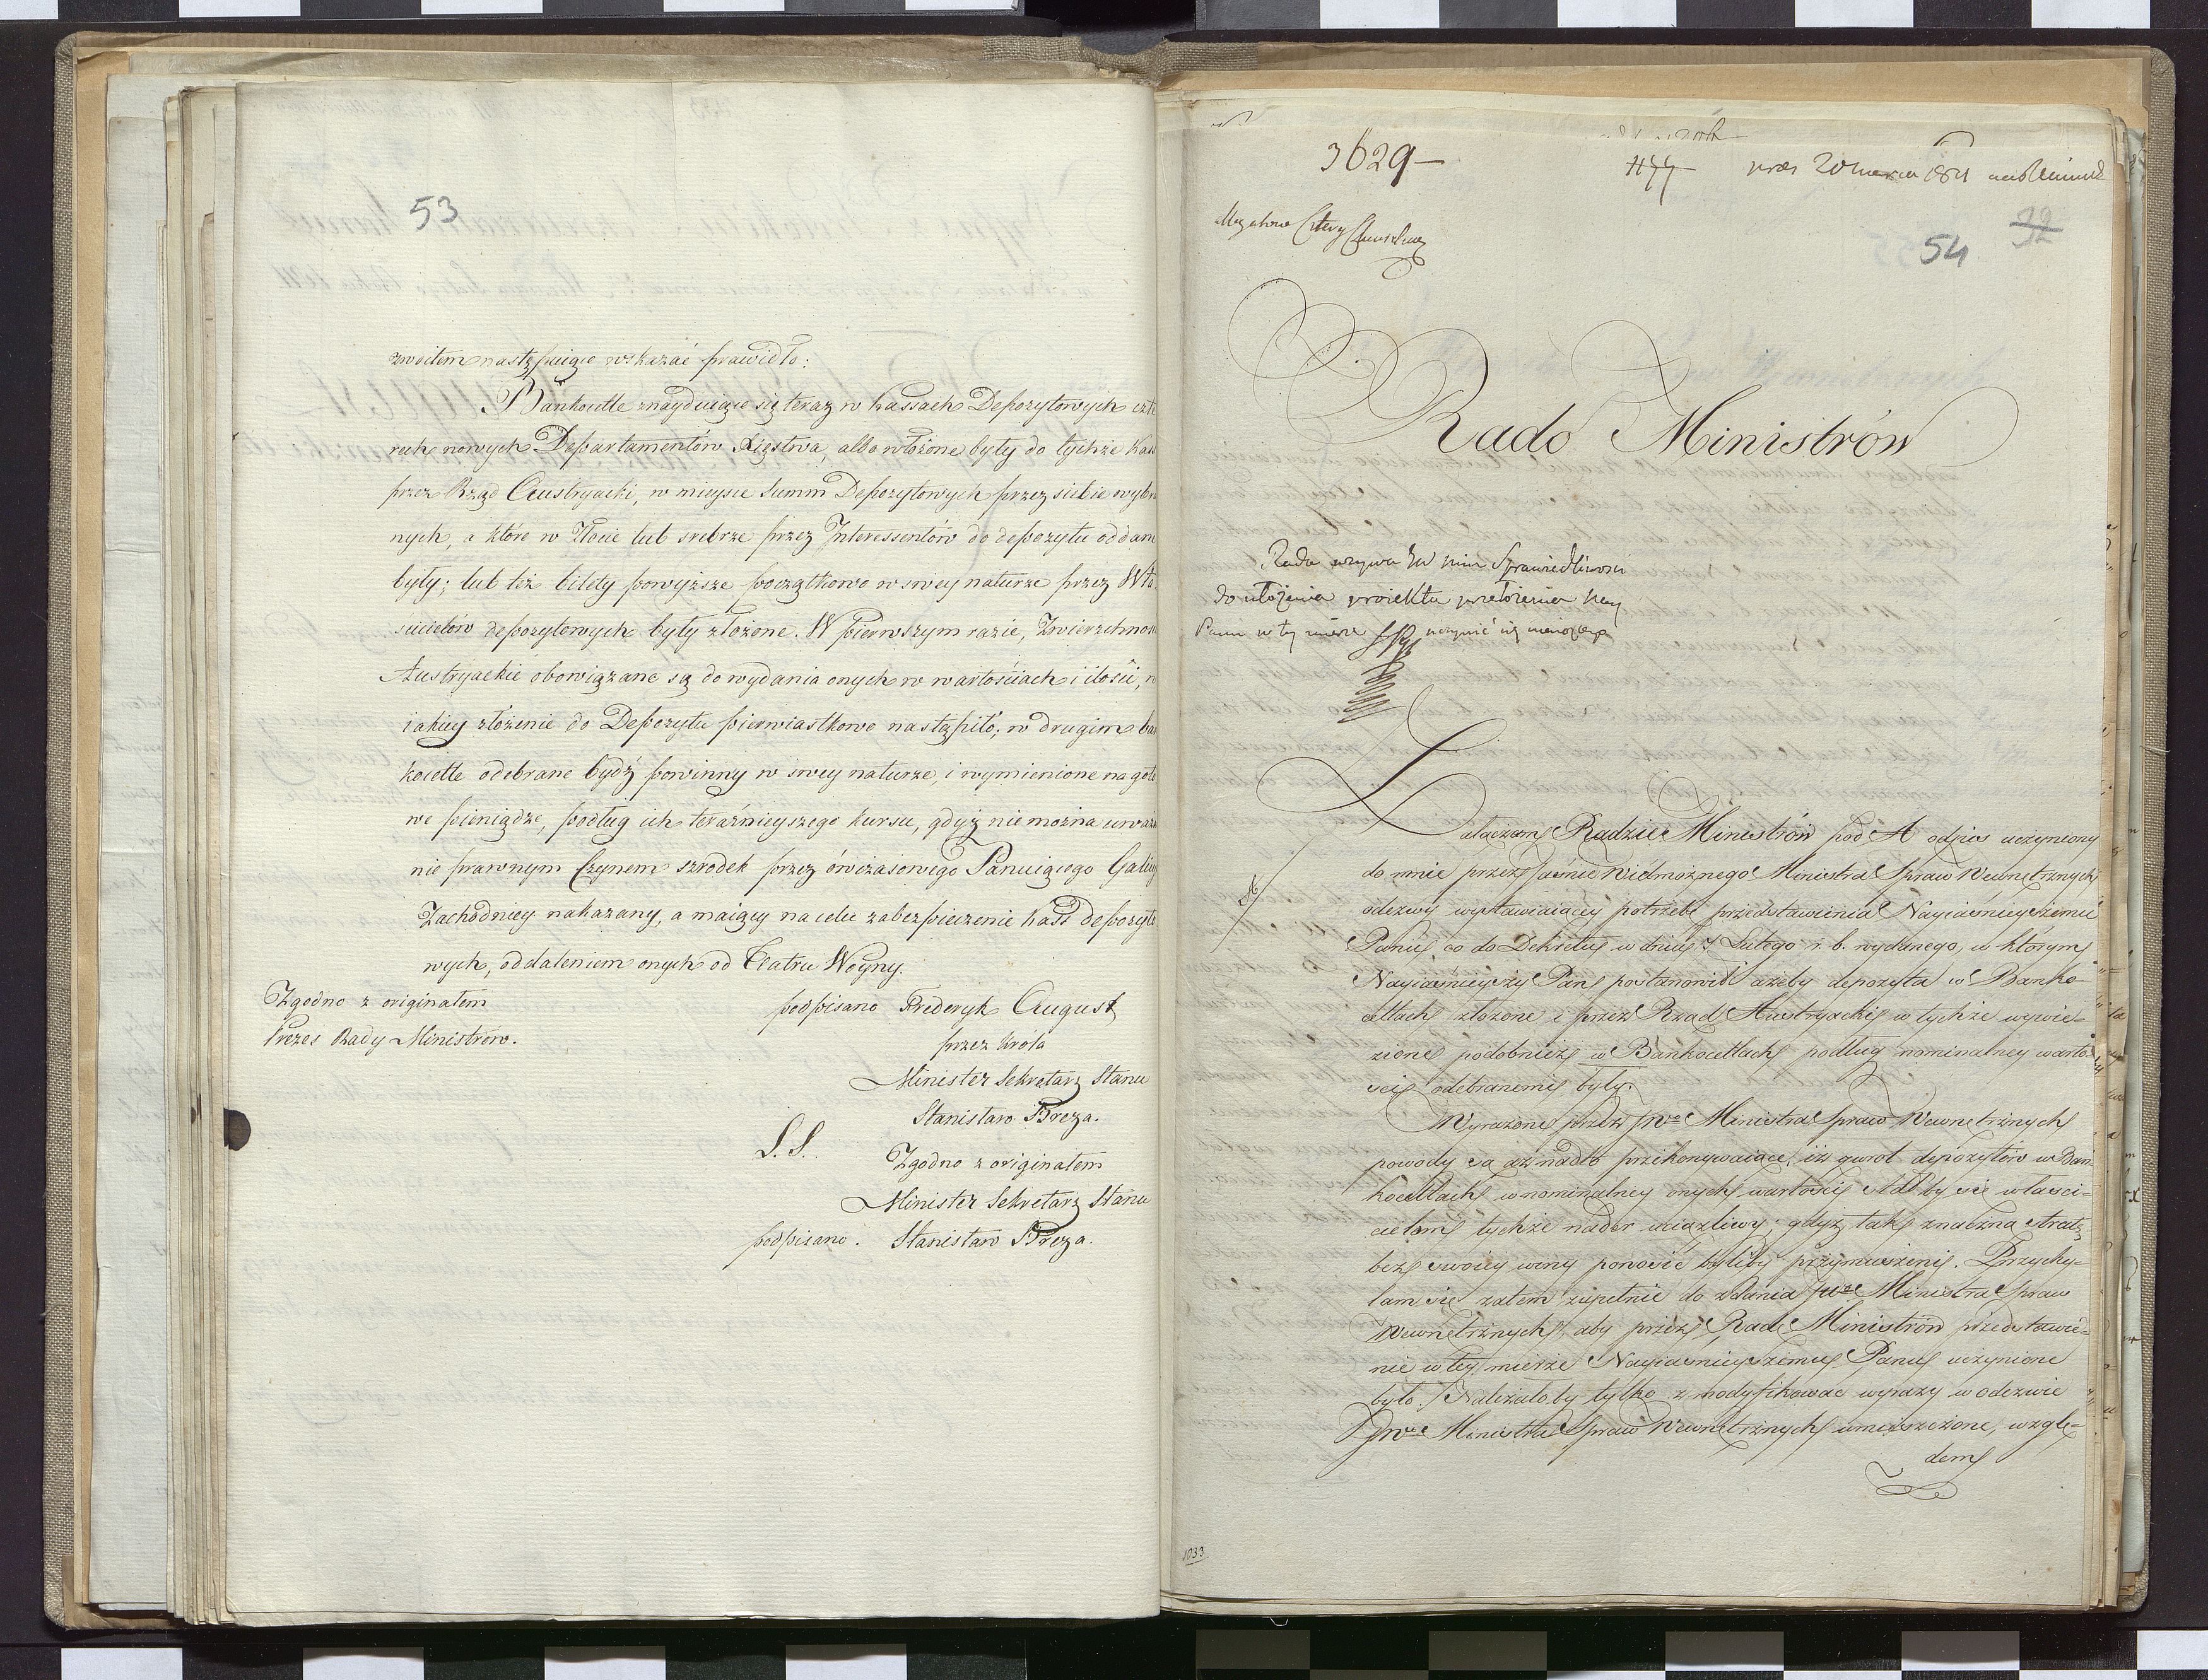 53
zwoitem następuiące wskazać prawidło:
Bankocetle znayduiące się teraz w kassach Depozytowych czte
rech nowych Departamentów Xięstwa, albo włożone były do tychże kass
przez Rząd Austryacki, w mieysce Summ Depozytowych przez siebie wybra
nych, a które w Złocie lub srebrze przez Interessentów do depozytu oddane
były; lub też bilety powyższe początkowo w swey naturze przez Wła
ścicielów depozytowych były złożone. W pierwszym razie, Zwierzchnos
Austryackie obowiązane są do wydania onych w wartościach i ilości, w
iakiey złożenie do Depozytu pierwiastkowo nastąpiło; w drugim ban
kocetle odebrane bydź powinny w swey naturze, i wymienione na goto
we pieniądze, podług ich teraźnieyszego kursu, gdyż nie można uważa
nie prawnym Czynem szrodek przez ówczasowego Panuiącego Galicy
Zachodniey nakazany, a maiący na celu zabezpieczenie kass depozyto
wych, oddaleniem onych od Teatru Woyny.
Zgodno z originałem
Prezes Rady Ministrów.
podpisano Frederyk August
przez Króla
Minister Sekretarz Stanu
Stanisław Breza.
L. S.
Zgodno z originałem
Minister Sekretarz Stanu
podpisano. Stanisław Breza.
3629
prez 20 marca 1811
54
32
Rado Ministrów
Rada wzywa JW Min Sprawiedliwosci
do ułożenia proiektu przełożenia Nay.
Panu w tey mierze uczynić się maiącego
A
Załączam Radzie Ministrów pod A odpis uczynioney
do mnie przez Jaśnie Wielmożnego Ministra Spraw Wewnętrznych
odezwy wystawiaiącey potrzebę przedstawienia Nayiaśnieyszemu
Panu co do Dekretu w dniu 7 Lutego r. b. wydanego, w którym
Nayiaśnieyszy Pan postanowił ażeby depozyta w Banko-
cetlach złożone i przez Rząd Austryacki w tychże wywie-
zione podobnież w Bankocetlach podług nominalney warto-
ści odebranemi były.
Wyrażone przez JWe Ministra Spraw Wewnętrznych
powody są aż nadto przekonywaiące, iż zwrot depozytów w Ban
kocetlach w nominalney onych wartości stałby się właści-
cielom tychże nader uciążliwy; gdyż tak znaczną stratę
bez swoiey winy ponosić byliby przymuszeni. Przychy-
lam się zatem zupełnie do zdania JWe Ministra Spraw
Wewnętrznych, aby przez Radę Ministrów przedstawie-
nie w tey mierze Nayiaśnieyszemu Panu uczynione
było. Należałoby tylko zmodyfikować wyrazy w odezwie
JWe Ministra Spraw Wewnętrznych umieszczone, wzglę-
dem
1033